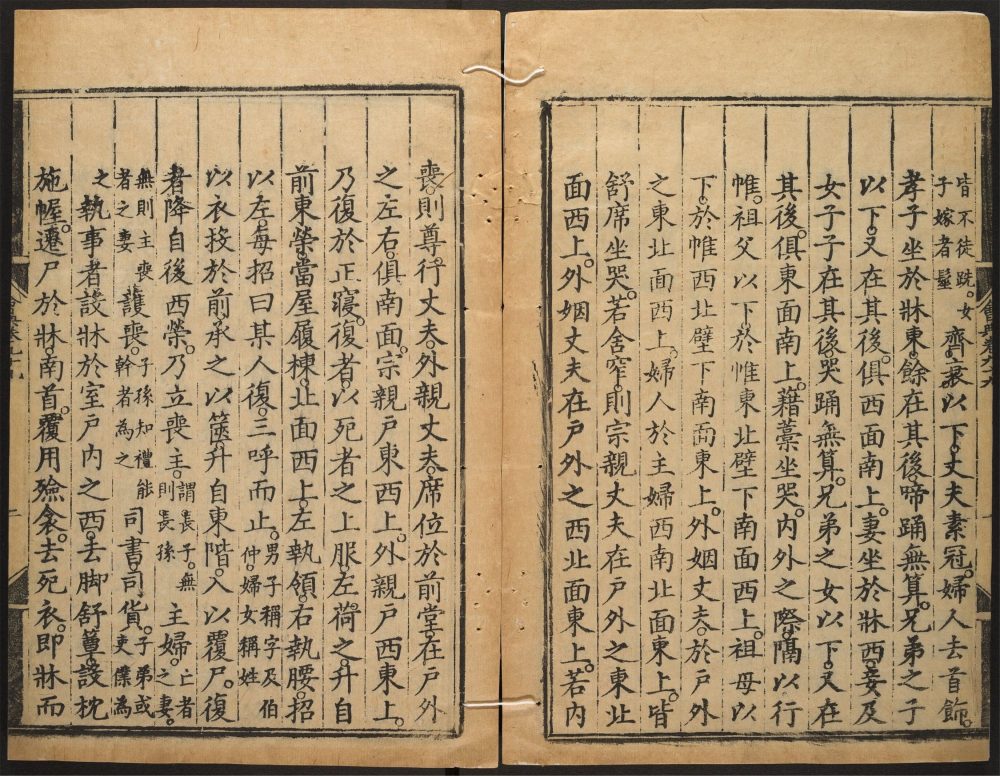 皆不徒跣。女子嫁者髽 齊衰以下丈夫素冠。婦人去首飾。
孝子坐於牀東。餘在其後啼踊無算。兄弟之子
以下又在其後。俱西面南上。妻坐於牀西。妾及
女子子在其後哭踊無算。兄弟之女以下又在
其後。俱東面南上。藉藁坐哭。内外之際隔以行
帷。祖父以下於帷東北壁下南面西上。祖母以
下。於帷西北壁下南面東上。外姻丈夫於戶外
之東北面西上。婦人於主婦西南北面東上。皆
舒席坐哭。若舍窄。則宗親丈夫在戶外之東北
面西上。外姻丈夫在戶外之西北面東上。若内
喪。則尊行丈夫。外親丈夫。席位於前堂。在戶外
之左右。俱南面。宗親戶東西上。外親戶西東上。
乃復於正寢。復者。以死者之上服。左荷之。升自
前東榮。當屋履棟。北面西上。左執領。右執腰。招
以左。每招曰某人復。三呼而止。男子稱字及伯仲。婦女稱姓
以衣投於前。承之以篋。升自東階。入以覆尸。復
者降自後西榮。乃立喪主。謂長子。無則長孫 主婦。亡者之妻。
無則主喪者之妻 護喪。子孫知禮能幹者為之 司書。司貨。子弟或吏僕為
之 執事者設牀於室戶内之西。去脚舒簟。設枕
施幄。遷尸於牀。南首。覆用殮衾。去死衣。即牀而